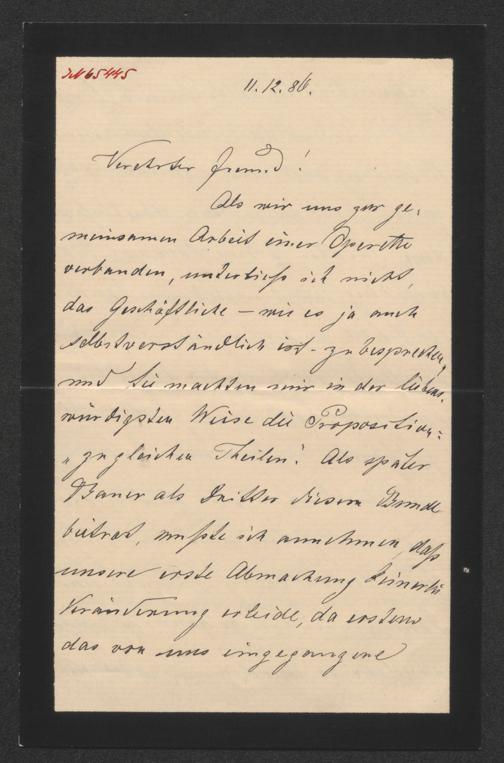 JN 65445
11.12.86.
Verehrter Freund!
Als wir uns zur ge-
meinsamen Arbeit einer Operette
verbanden, unterließ ich nicht,
das Geschäftliche – wie es ja auch
selbstverständlich ist – zu besprechen,
und Sie machten mir in der liebens-
würdigsten Weise die Proposition:
„zu gleichen Theilen". Als später
Bauer als Dritter diesem Bunde
beitrat, mußte ich annehmen, daß
unsere erste Abmachung keinerlei
Veränderung erleide, da erstens
das von uns eingegangene